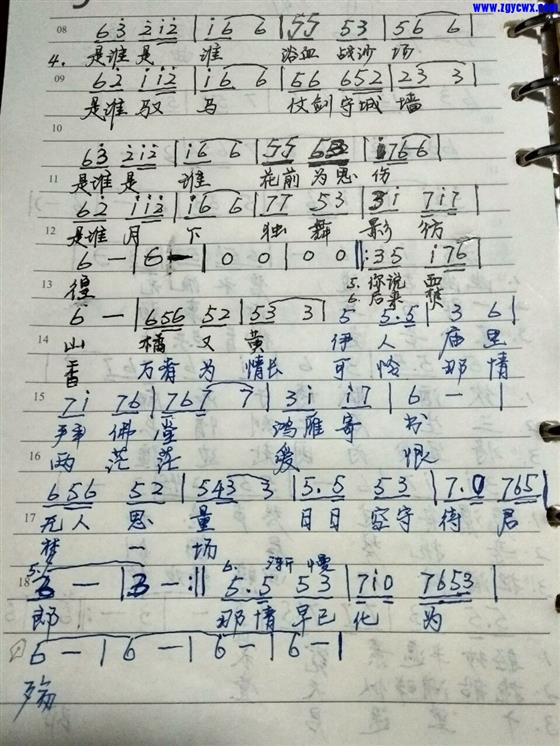 www.zgycwx.com
08 6 3 2 1 2 | 1 6 6 | 5 5 5 3 | 5 6 6 |
4. 是谁是 谁 浴血 战沙 场
09 6 2 1 1 2 | 1 6 6 | 5 6 6 5 2 | 2 3 3 |
是谁 驭 马 仗剑 守城 墙
10
6 3 2 1 2 | 1 6 6 | 5 5 | 1 7 6 6 |
11 是谁是 谁 花前 为思 伤
6 2 1 1 2 | 1 6 6 | 7 7 5 3 | 3 1 7 1 7 |
12 是谁 月 下 独 舞 影 彷
6 - | 6 - | 0 0 | 0 0 ‖: 3 5 1 7 6 |
13 徨 5. 你说 血
6. 后来
6 - | 6 5 6 5 2 | 5 3 3 | 5 5. 5 | 3 6 |
14 山 橘 又 黄 伊 人 庙 里
香 万有 为 情长 可 怜 那 情
15 7 1 7 6 | 7 6 7 7 | 3 1 1 7 | 6 - |
拜 佛 堂 鸿 雁 寄 书
16 两 茫 茫 爱 恨
6 5 6 5 2 | 5 4 3 3 | 5. 5 5 3 | 7. 0 7 6 5 |
17 无人 思 量 日日 空守 待 君
梦 一 场
18 3 - | 3 - :‖ 6. 渐慢 5. 5 5 3 | 7 1 0 7 6 5 3 |
郎 那情 早已 化 为
6 - | 6 - | 6 - | 6 - |
殇